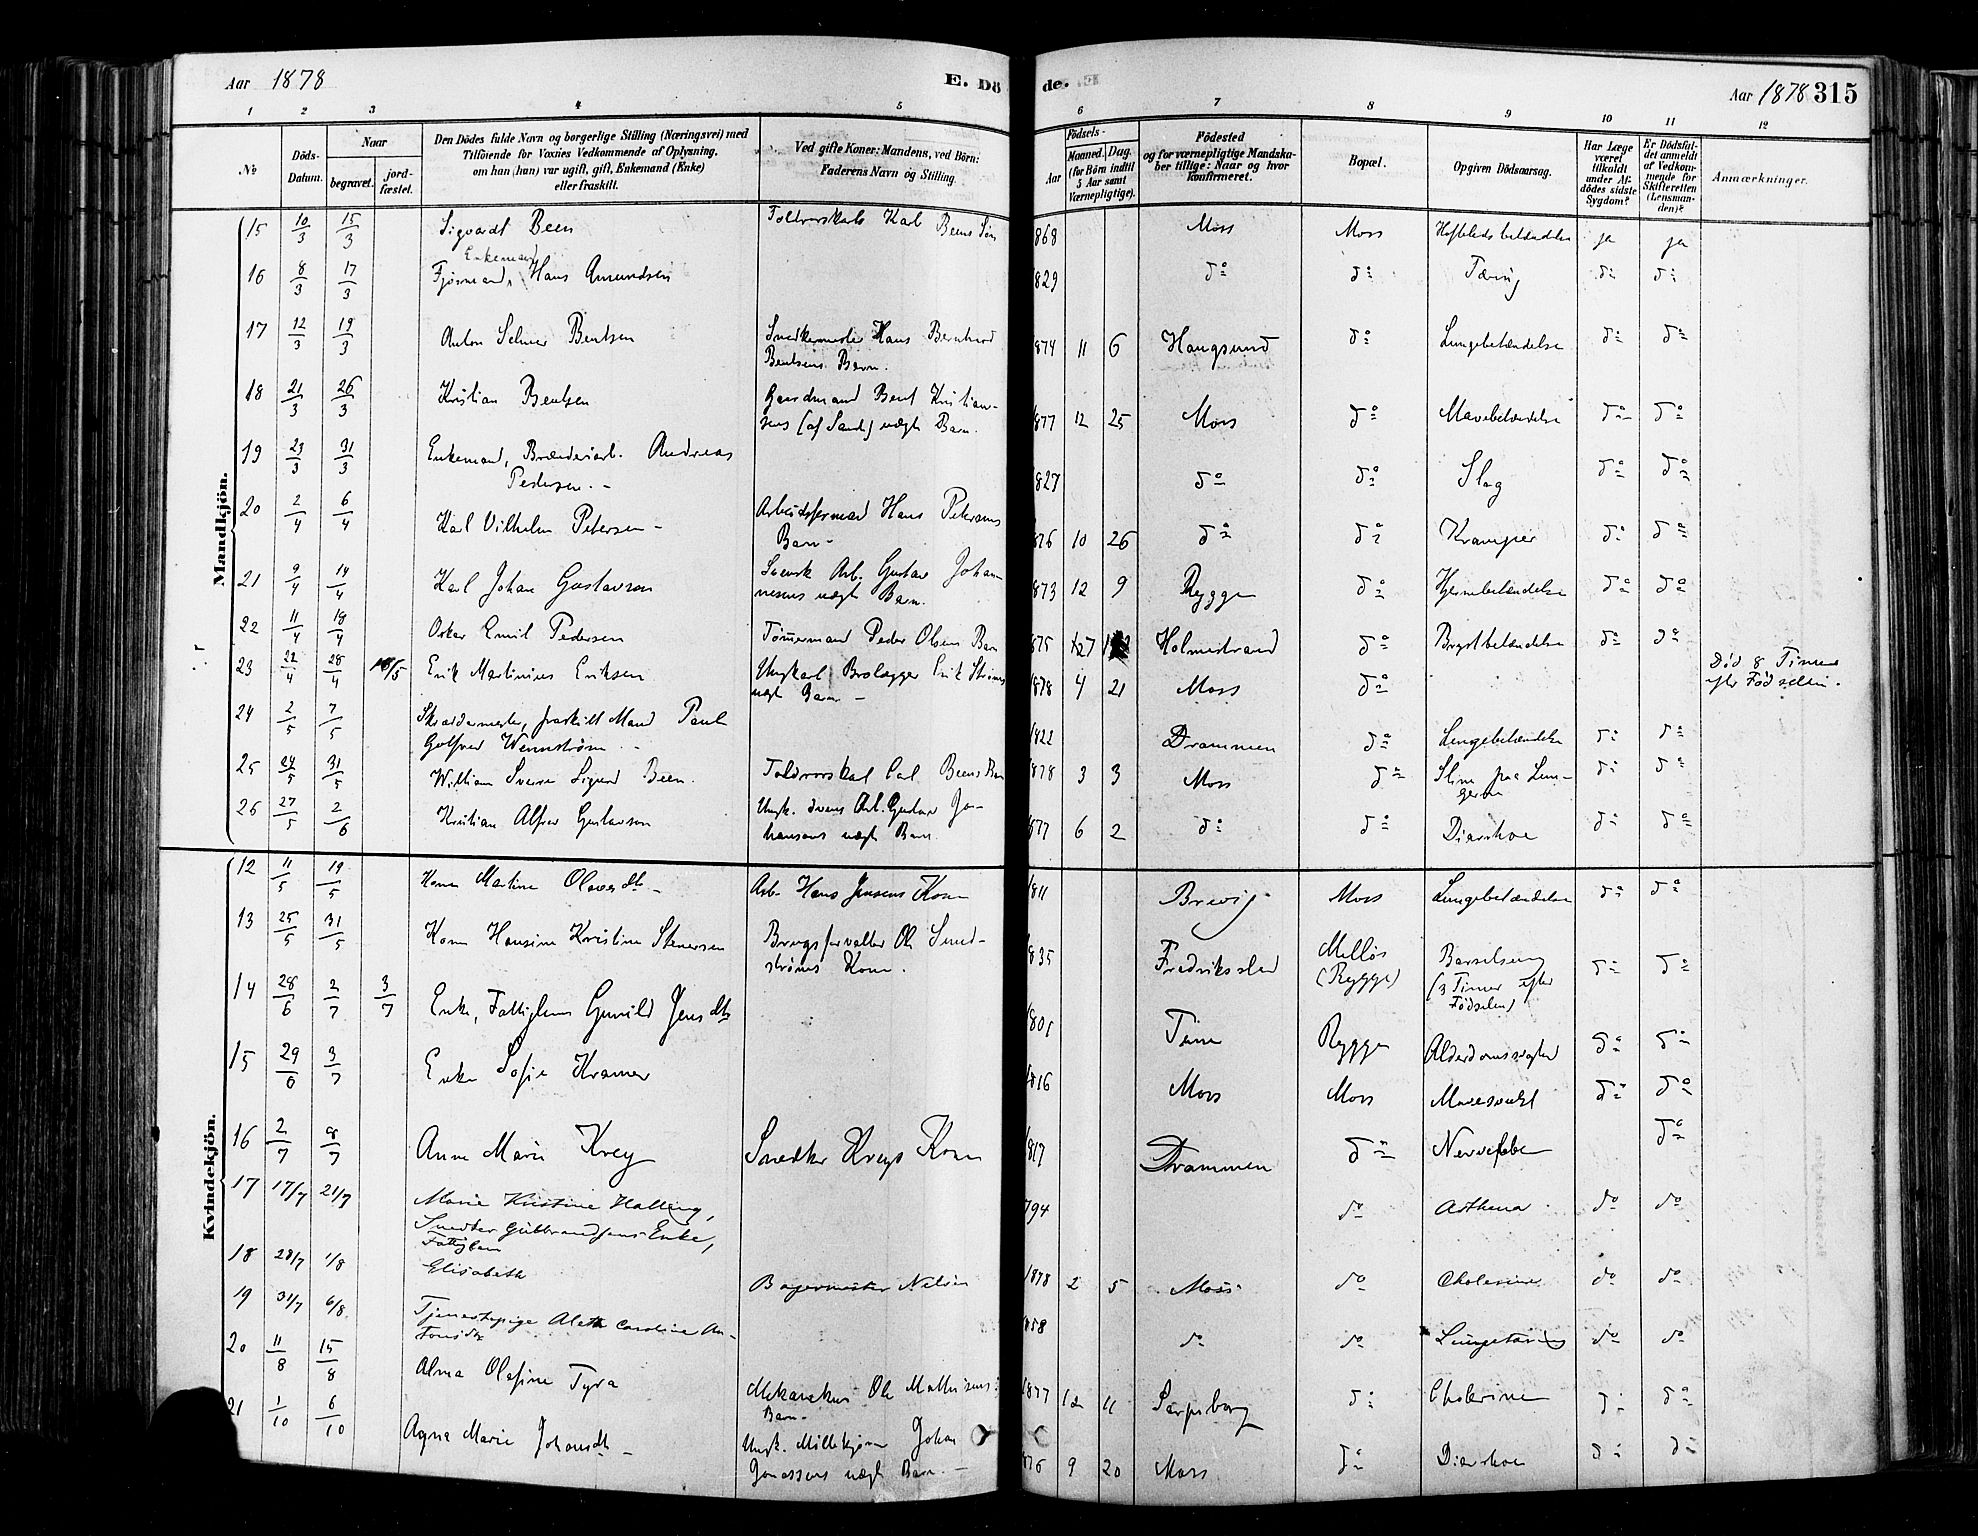 Aar 1878 E. Dö de. Aar 1878 315
1 2 3 4 5 6 7 8 9 10 11 12
No Döds-Datum. Naar begravet. jord-fæstet.
Den Dödes fulde Navn og borgerlige Stilling (Næringsvei) med
Tilföiende for Voxnes Vedkommende af Oplysning,
om han (hun) var ugift, gift, Enkemand (Enke)
eller fraskilt.
Ved gifte Koner: Mandens, ved Börn:
Faderens Navn og Stilling.
Födsels-
Aar Maaned. Dag.
(for Börn indtil
5 Aar samt
Værnepligtige).
Födested
og for værnepligtige Mandska-
ber tillige: Naar og hvor
konfirmeret.
Bopæl.
Opgiven Dödsaarsag.
Har Læge
været
tilkaldt
under Af-
dödes sidste
Sygdom?
Er Dödsfal-
det anmeldt
af Vedkom-
mende for
Skifteretten
(Lensman-
den)?
Anmærkninger.
Mandkjön.
15 10/3 15/3 Sigvardt Been Toldrorskarl Karl Beens Søn 868 Moss Moss ja ja
Enkemand
16 8/3 17/3 Hans Amundsen 829 do do Tæring do do
17 12/3 19/3 Anton Selmer Bentsen Snedkermester Hans Bernhard
Bentsens Barn. 874 11 6 Haugsund do Lungebetændelse do do
18 21/3 26/3 Kristian Bentsen Gaardmand Bent Kristian-
sens (af Sand) uægte Barn. 877 12 25 Moss do Mavebetændelse do do
19 23/3 31/3 Enkemand, Brænderiarb. Andreas
Pedersen. - 827 do do Slag do do
20 2/4 6/4 Karl Vilhelm Petersen - Arbeidsformand Hans Petersens
Barn - 876 10 26 do do Kramper do do
21 9/4 14/4 Karl Johan Gustavson Svensk Arb. Gustav Johan-
nesens uægte Barn. 873 12 9 Rygge do Hjernebetændelse do do
22 11/4 18/4 Oskar Emil Pedersen Tømmermand Peder Olsens Barn 875 Holmestrand do Brystbetændelse do do
23 22/4 28/4 18/5 Erik Martinius Eriksen Ungkarl Brolægger Erik
uægte Barn - 1878 4 21 Moss do Død 8 Timer
efter Fødselen.
24 2/5 7/5 Skræddermester, fraskilt Mand Paul
Gotfred Wennstrøm 1822 Drammen do Lungebetændelse do do
25 24/5 31/5 William Sverre Sigurd Been. Toldrorskarl Carl Beens Barn 1878 3 3 Moss do Slim paa Lun-
gerne do do
26 27/5 2/6 Kristian Alfred Gustavson Ungk. svensk Arb. Gustav Jo-
hansens uægte Barn. 877 6 2 do do Diarrhoe do do
Kvindekjön.
12 11/5 19/5 Kone Martine Olavesdtr - Arb. Hans Jensens Kone 1811 Brevig Moss Lungebetændelse do do
13 25/5 31/5 Kone Hansine Kristine Stenersen Brugsforvalter Ole Sand-
strøms Kone. 835 Fredriksstad Melløs
(Rygge) Barselseng
(3 Timer efter
Fødselen) do do
14 28/6 2/7 3/7 Enke, Fattiglem Gunild Jensdtr 1801 Rygge do do
15 29/6 3/7 Enke Sofie Kramer 1816 Moss Moss do do
16 2/7 8/7 Anne Marie Krey Snedker Kreys Kone 817 Drammen do Nervefeber do
17 17/7 21/7 Marie Kristine Halling,
Snedker Gulbrandsens Enke,
Fattiglem 794 do Asthena do do
18 28/7 1/8 Elisabeth Bagermester Nelsen 1878 2 5 Moss do Cholerine do do
19 31/7 6/8 Tjenestepige Alette Caroline An-
tonsdtr 858 do do Lungetæring do do
20 11/8 15/8 Alma Olefine Tyra Mekanikus Ole Mathisens
Barn. 1877 12 11 Sarpsborg do Cholerine do do
21 1/10 6/10 Agna Marie Johansdtr - Ungk. Møllekjører Johan
Jonassens uægte Barn. - 876 9 20 Moss do Diarrhoe do do